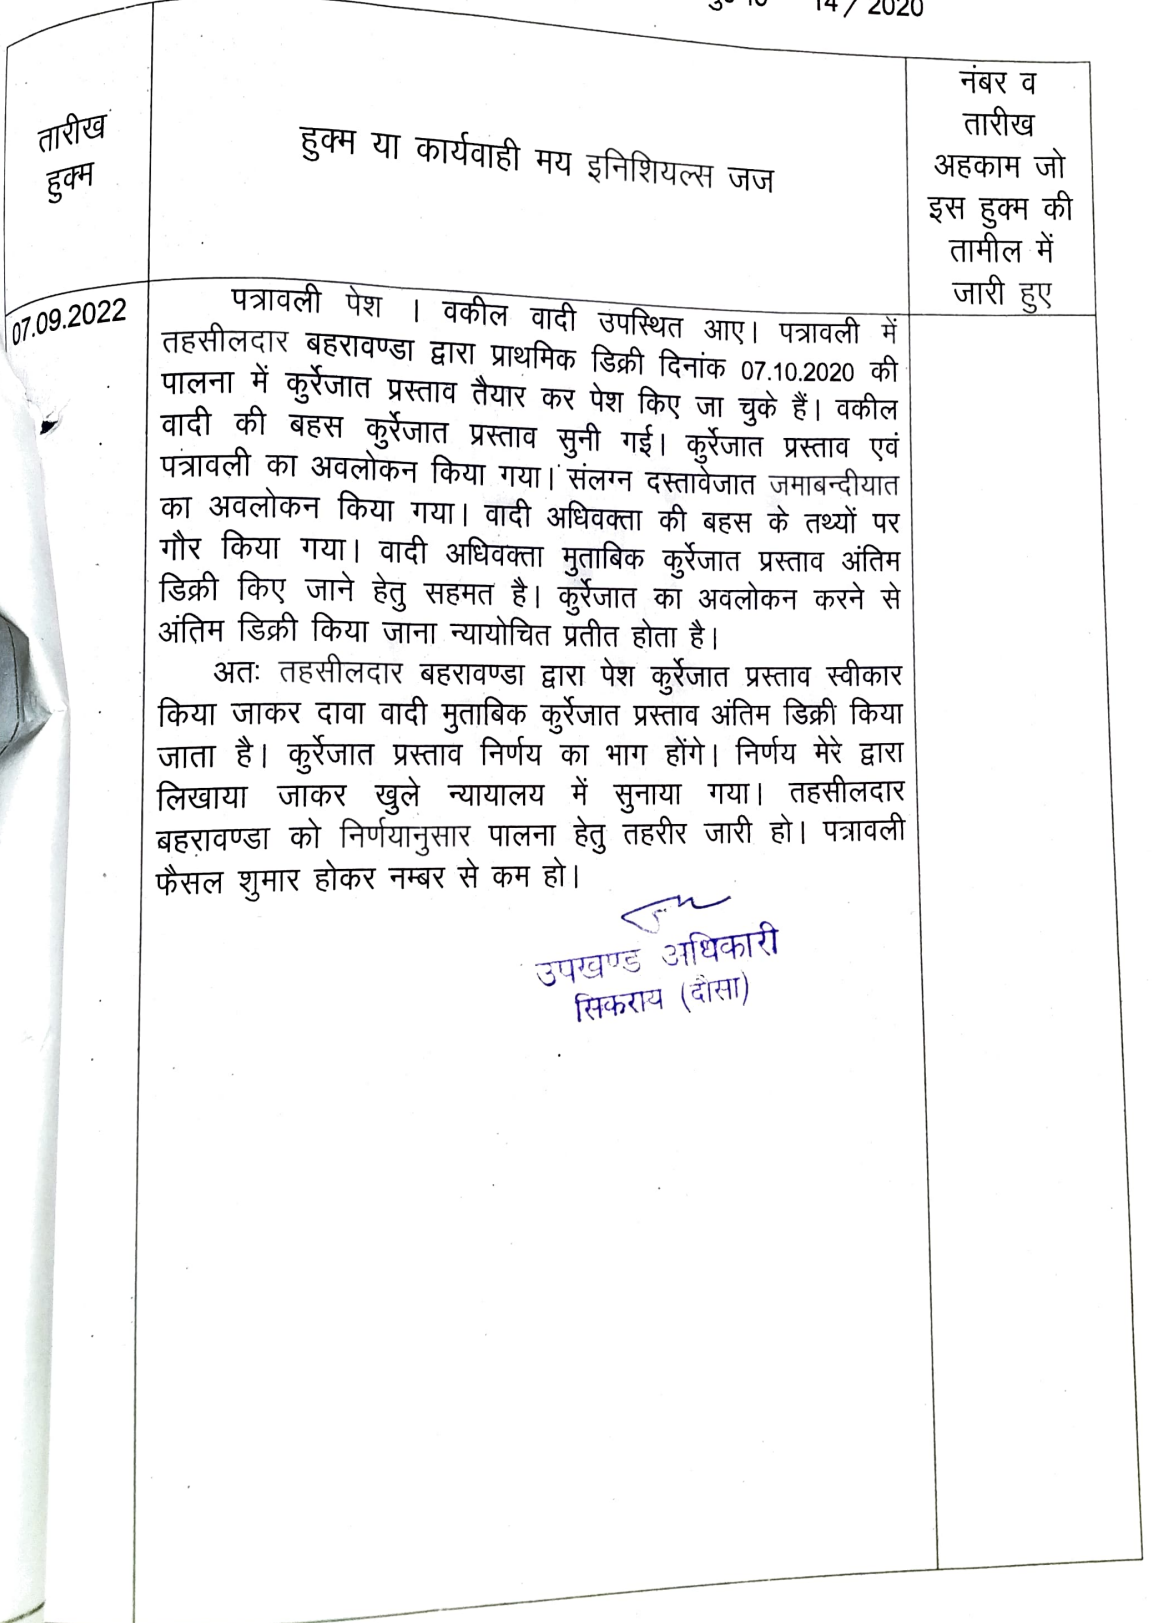 14/2020
तारीख
हुक्म
हुक्म या कार्यवाही मय इनिशियल्स जज
नंबर व
तारीख
अहकाम जो
इस हुक्म की
तामील में
जारी हुए
07.09.2022
पत्रावली पेश । वकील वादी उपस्थित आए। पत्रावली में
तहसीलदार बहरावण्डा द्वारा प्राथमिक डिक्री दिनांक 07.10.2020 की
पालना में कुर्रेजात प्रस्ताव तैयार कर पेश किए जा चुके हैं। वकील
वादी की बहस कुर्रेजात प्रस्ताव सुनी गई। कुर्रेजात प्रस्ताव एवं
पत्रावली का अवलोकन किया गया। संलग्न दस्तावेजात जमाबन्दीयात
का अवलोकन किया गया। वादी अधिवक्ता की बहस के तथ्यों पर
गौर किया गया। वादी अधिवक्ता मुताबिक कुर्रेजात प्रस्ताव अंतिम
डिक्री किए जाने हेतु सहमत है। कुर्रेजात का अवलोकन करने से
अंतिम डिक्री किया जाना न्यायोचित प्रतीत होता है।
अतः तहसीलदार बहरावण्डा द्वारा पेश कुर्रेजात प्रस्ताव स्वीकार
किया जाकर दावा वादी मुताबिक कुर्रेजात प्रस्ताव अंतिम डिक्री किया
जाता है। कुर्रेजात प्रस्ताव निर्णय का भाग होंगे। निर्णय मेरे द्वारा
लिखाया जाकर खुले न्यायालय में सुनाया गया। तहसीलदार
बहरावण्डा को निर्णयानुसार पालना हेतु तहरीर जारी हो। पत्रावली
फैसल शुमार होकर नम्बर से कम हो।
उपखण्ड अधिकारी
सिकराय (दौसा)